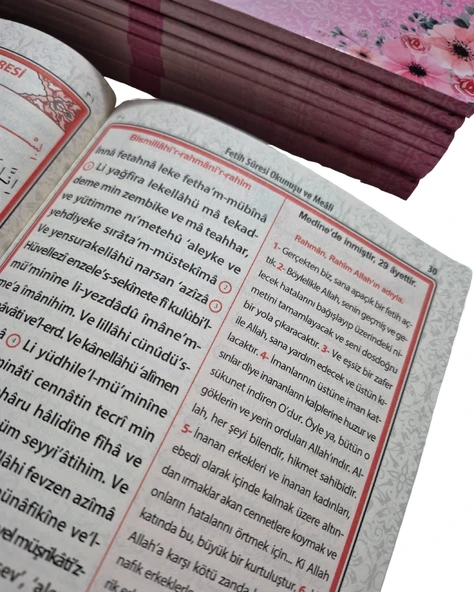 RESİ
Fetih Sûresi Okunuşu ve Meâli
30
Bismillâhi'r-rahmâni'r-rahîm
İnnâ fetahnâ leke fetha'm-mübînâ
① Li yağfira lekellâhü mâ tekad-
deme min zembike ve mâ teahhar,
ve yütimme nı'metehû 'aleyke ve
yehdiyeke sırâta'm-müstekîmâ ②
Ve yensurakellâhü narsan 'azîzâ ③
Hüvellezî enzele's-sekînete fî kulûbi'l-
mü'minîne li-yezdâdû îmâne'm-
me'a îmânihim. Ve lillâhi cünûdü's-
âvâti ve'l-erd. Ve kânellâhü 'alîmen
④ Li yüdhile'l-mü'minîne
minâti cennâtin tecrî min
hâru hâlidîne fîhâ ve
üm seyyi'âtihim. Ve
llâhi fevzen azîmâ
münâfikîne ve'l-
vel müşrikâti'z-
sev', 'ale
Medîne'de inmiştir. 29 âyettir.
Rahmân, Rahîm Allah'ın adıyla.
1- Gerçekten biz, sana apaçık bir fetih aç-
tık. 2- Böylelikle Allah, senin geçmiş ve ge-
lecek hatalarını bağışlayıp üzerindeki ni-
metini tamamlayacak ve seni dosdoğru
bir yola çıkaracaktır. 3- Ve eşsiz bir zafer
ile Allah, sana yardım edecek ve üstün kı-
lacaktır. 4- İmanlarının üstüne iman kat-
sınlar diye inananların kalplerine huzur ve
sükunet indiren O'dur. Öyle ya, bütün o
göklerin ve yerin orduları Allah'ındır. Al-
lah, her şeyi bilendir, hikmet sahibidir.
5- İnanan erkekleri ve inanan kadınları,
ebedi olarak içinde kalmak üzere altın-
dan ırmaklar akan cennetlere koymak ve
onların hatalarını örtmek için... Ki Allah
katında bu, büyük bir kurtuluştur. 6-
Allah'a karşı kötü zanda
nafık erkeklerle
rik erk